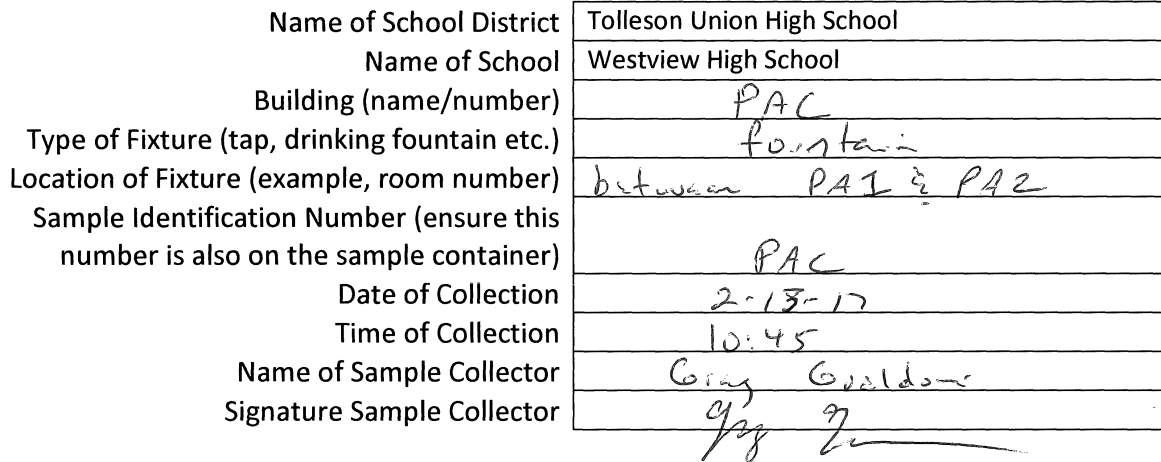 Name of School District Tolleson Union High School
Name of School Westview High School
Building (name/number) PAC
Type of Fixture (tap, drinking fountain etc.) fountain
Location of Fixture (example, room number) between PA1 & PA2
Sample Identification Number (ensure this
number is also on the sample container) PAC
Date of Collection 2-13-17
Time of Collection 10:45
Name of Sample Collector Greg
Signature Sample Collector